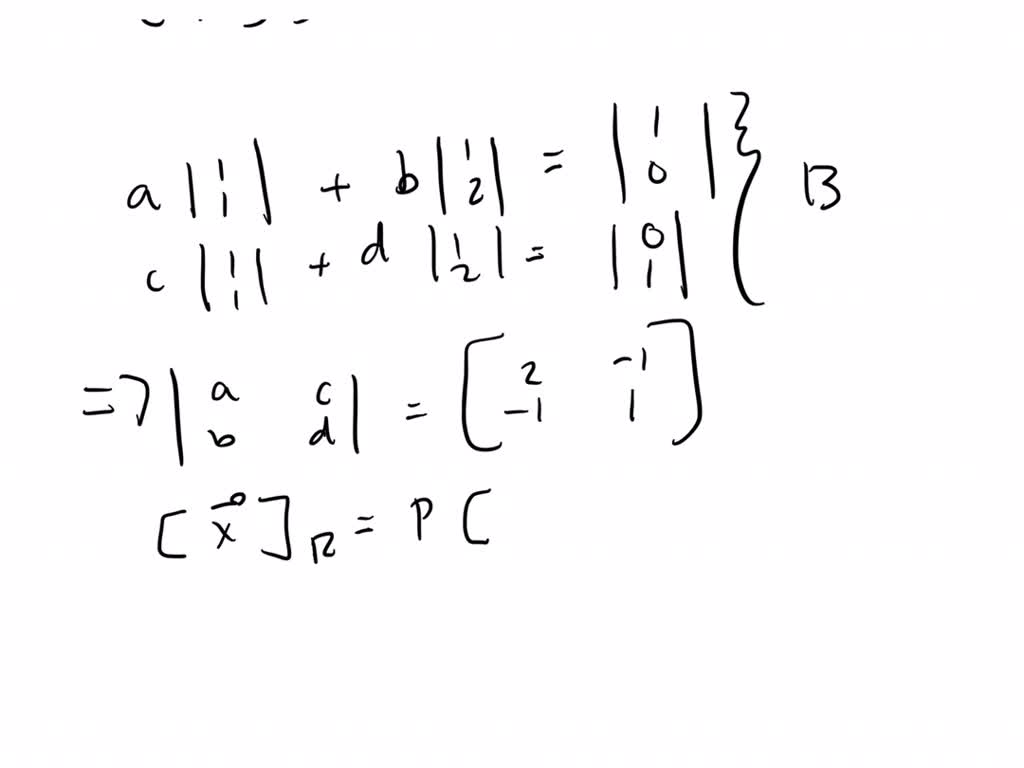 a |1 1| + b |1 2| = |1 0| } B
c |1 1| + d |1 2| = |0 1|
=> |a c b d| = [2 -1 -1 1]
[x⃗]B = P [